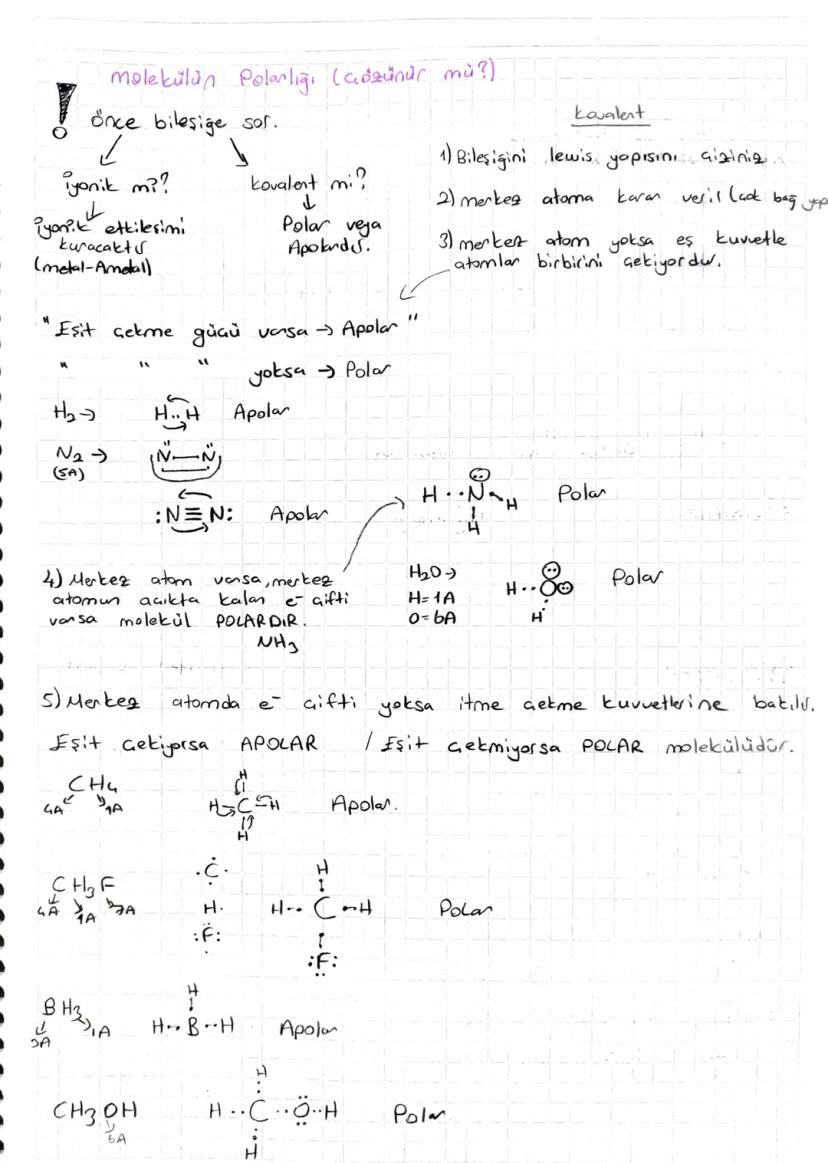 molekülün Polarlığı (çözünür mü?)
! Önce bileşiğe sor.
iyonik mi?
kovalent mi?
iyonik etkileşimi
kuracaktır
(metal-Ametal)
Polar veya
Apolardır.
kovalent
1) Bileşiğini lewis yapısını çiziniz.
2) merkez atoma karar veril (çok bağ yap
3) merkez atom yoksa eş kuvvetle
atomlar birbirini çekiyordur.
"Eşit çekme gücü varsa → Apolar"
" " " yoksa → Polar
H2 → H..H Apolar
N2 → N̈—N̈
(5A)
:N≡N: Apolar
H..N..H Polar
H
4) Merkez atom varsa, merkez
atomun açıkta kalan e- çifti
varsa molekül POLARDIR.
NH3
H2O →
H=1A
O=6A
H..O Polar
H
5) Merkez atomda e- çifti yoksa itme çekme kuvvetlerine bakılır.
Eşit çekiyorsa APOLAR / Eşit çekmiyorsa POLAR molekülüdür.
CH4
4A 1A
H
H C H Apolar.
H
CH3F
4A 1A 7A
.C.
H.
:F:
H
H..C..H Polar
:F:
BH3
3A 1A
H
H..B..H Apolar
CH3OH
6A
H
H..C..O..H Polar
H